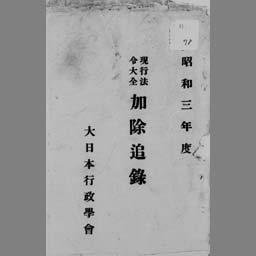 昭和三年度
現行法
令大全
加除追錄
大日本行政學會